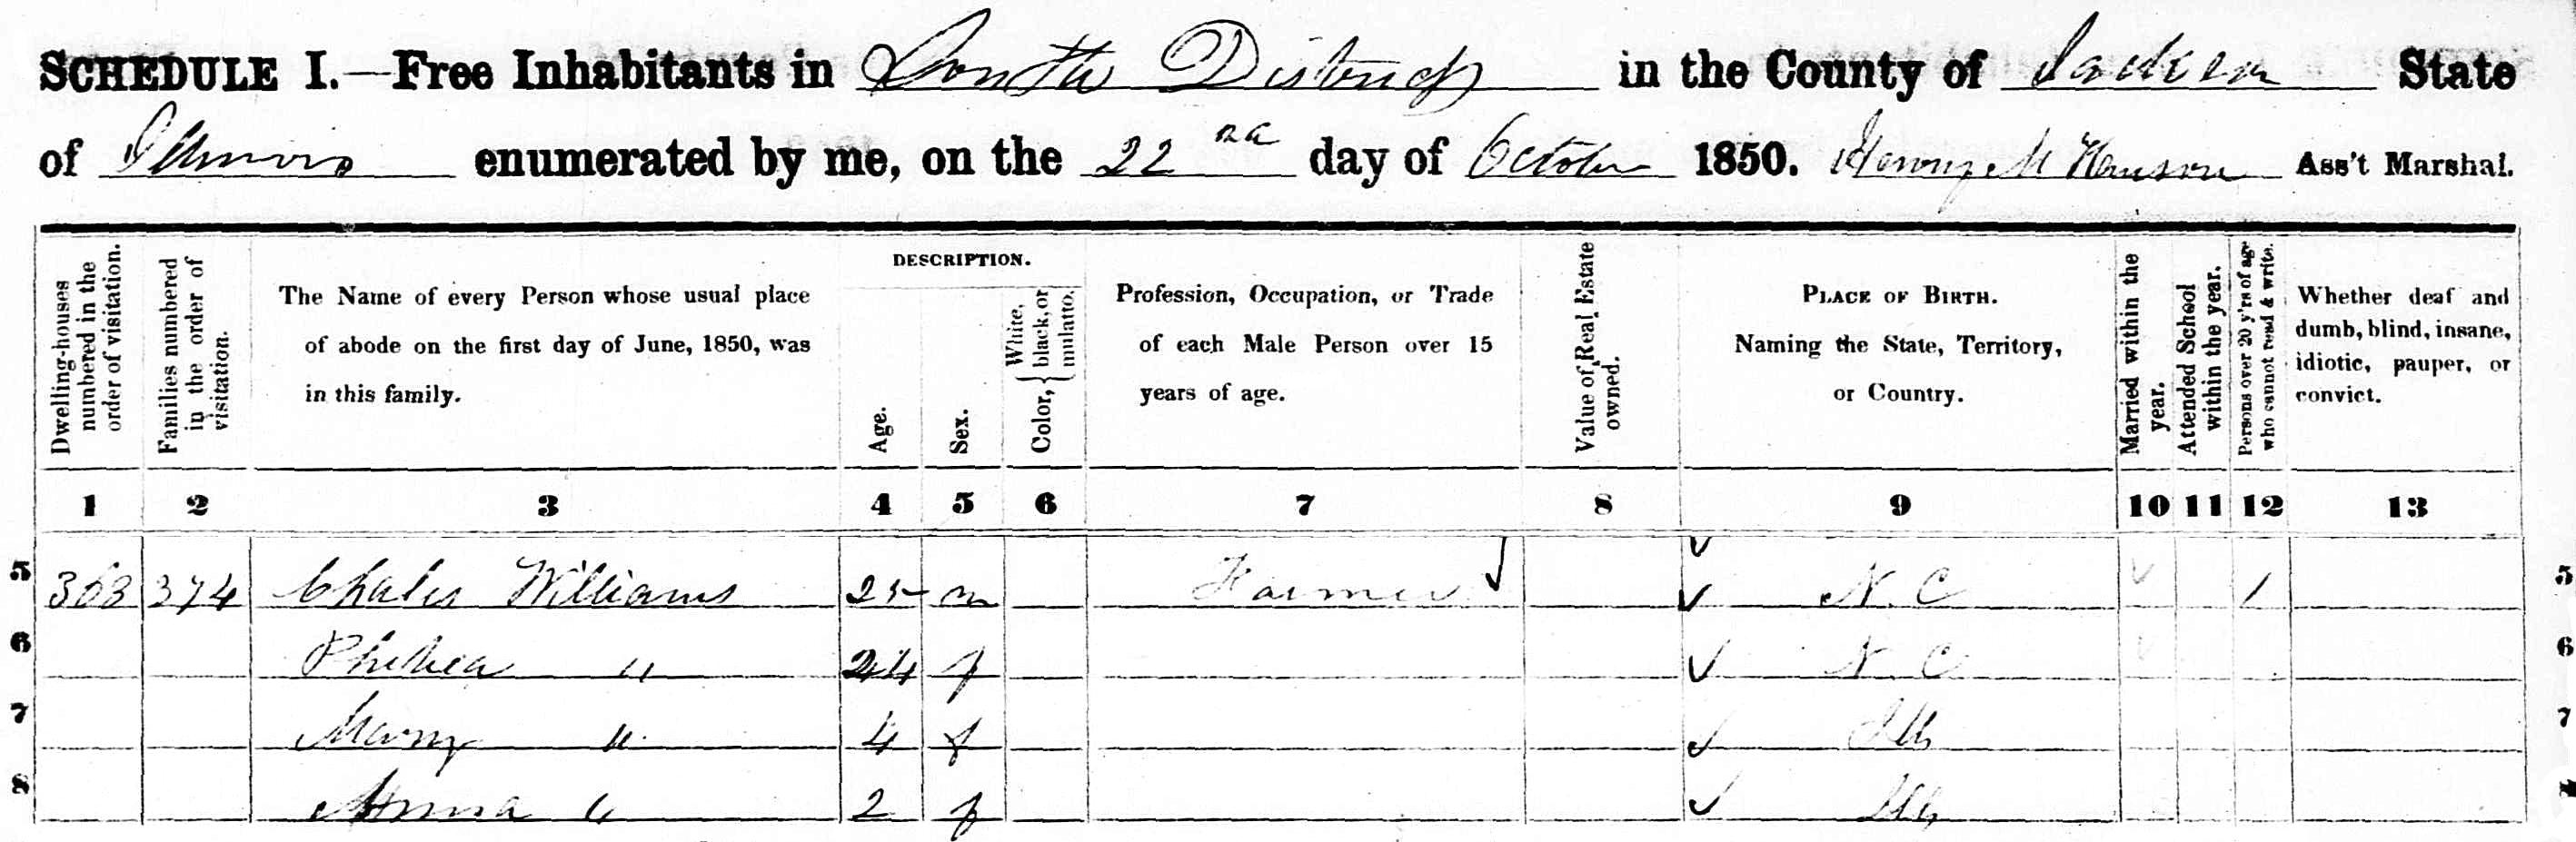 SCHEDULE I.—Free Inhabitants in South District in the County of Jackson State
of Illinois enumerated by me, on the 22nd day of October 1850. Henry M Hanson Ass't Marshal.
Dwelling-houses numbered in the order of visitation.
Families numbered in the order of visitation.
The Name of every Person whose usual place
of abode on the first day of June, 1850, was
in this family.
DESCRIPTION.
Age.
Sex.
Color, { White, black, or mulatto.
Profession, Occupation, or Trade
of each Male Person over 15
years of age.
Value of Real Estate owned.
PLACE OF BIRTH.
Naming the State, Territory,
or Country.
Married within the year.
Attended School within the year.
Persons over 20 y'rs of age who cannot read & write.
Whether deaf and
dumb, blind, insane,
idiotic, pauper, or
convict.
1 2 3 4 5 6 7 8 9 10 11 12 13
5 368 374 Chales Williams 25 m Farmer ✓ ✓ N. C / 5
6 " 24 f ✓ N. C 6
7 Mary " 4 f ✓ Ills 7
8 " 2 f ✓ Ills